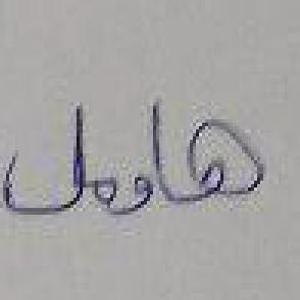 هاومل